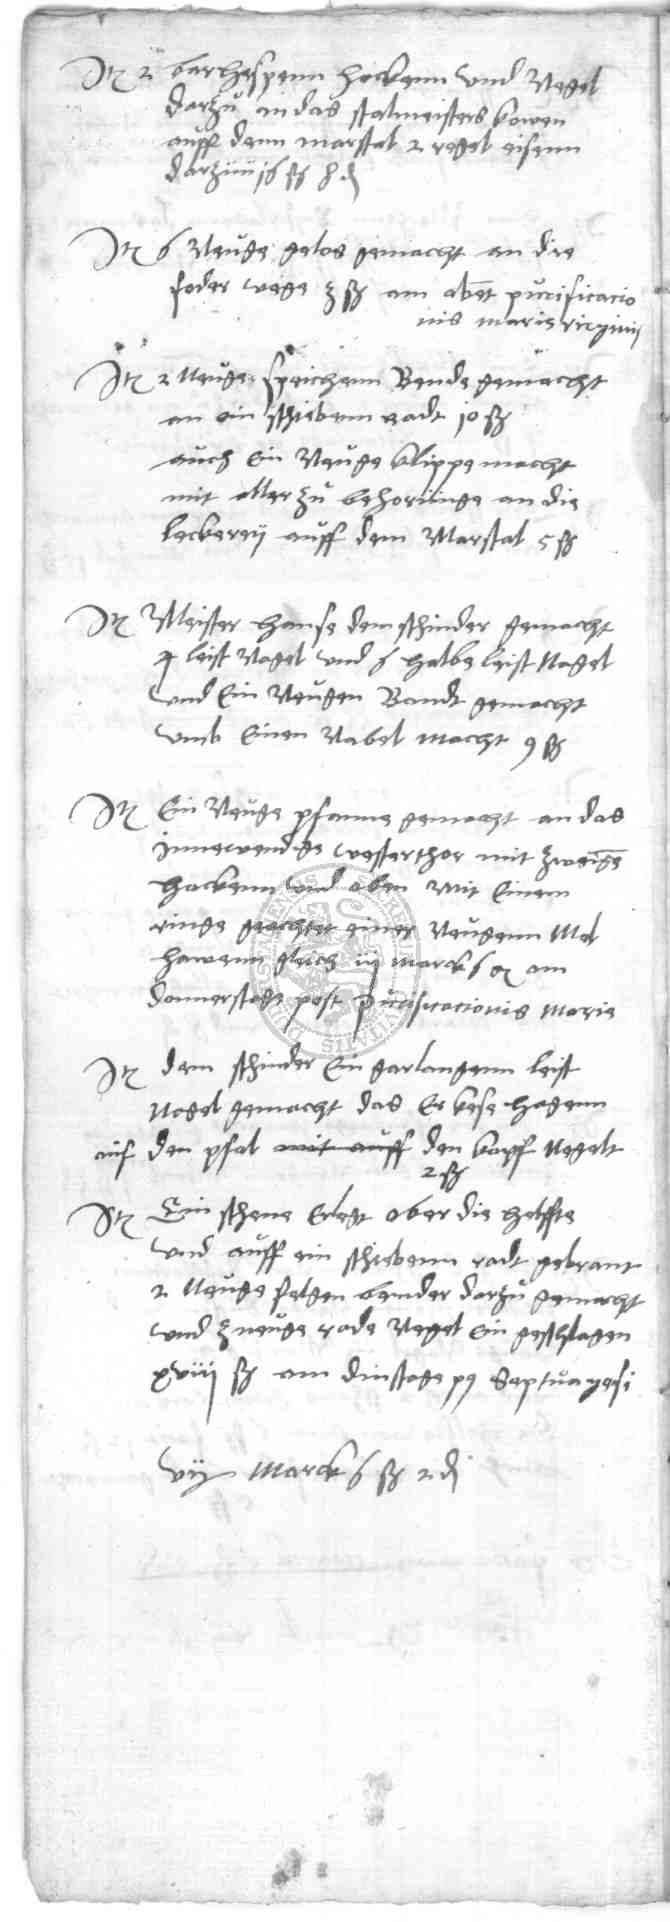 It 2 barhespenn hockenn und Negel
darzu in das stalmeisters kowen
auff denn marstal 2 regel eisenn
darzu 16 ß 8 d
It 6 Neuge gelos gemacht an die
foder wege 3 ß am abet purificacio
nis marie virginis
It 2 Neuge speichenn Bende gemacht
an ein schiebenn radt 10 ß
auch Ein Neuge klippe macht
mit aller zu behorunge an die
leckerey auff dem Marstal 5 ß
It Meister Hanse dem schinder gemacht
4 leist Nagel und 6 halbe leist Nagel
und Ein Neugen Bandt gemacht
umb Einen Nabel macht 9 ß
It Ein Neuge pfanne gemacht an das
Innewendige westerthor mit zweige
hockenn und oben mit Einem
ringe geachtet einer Neugenn Mol
hawenn gleich iij marck 6 am
donnerstage post Purificacionis Marie
It dem schinder Ein garlangenn leist
Nagel gemacht das Er kese hagenn
auf den pfal mit auff den kopf Negelt
2 ß
It Ein schene Erlegt ober die helffte
und auff ein schiebenn radt gebrant
2 Neuge felgen bender darzu gemacht
und 3 neuge rade Negel Ein geschlagen
xviij ß am dinstage p9 Septuagesi
vij Marck 6 ß 2 d